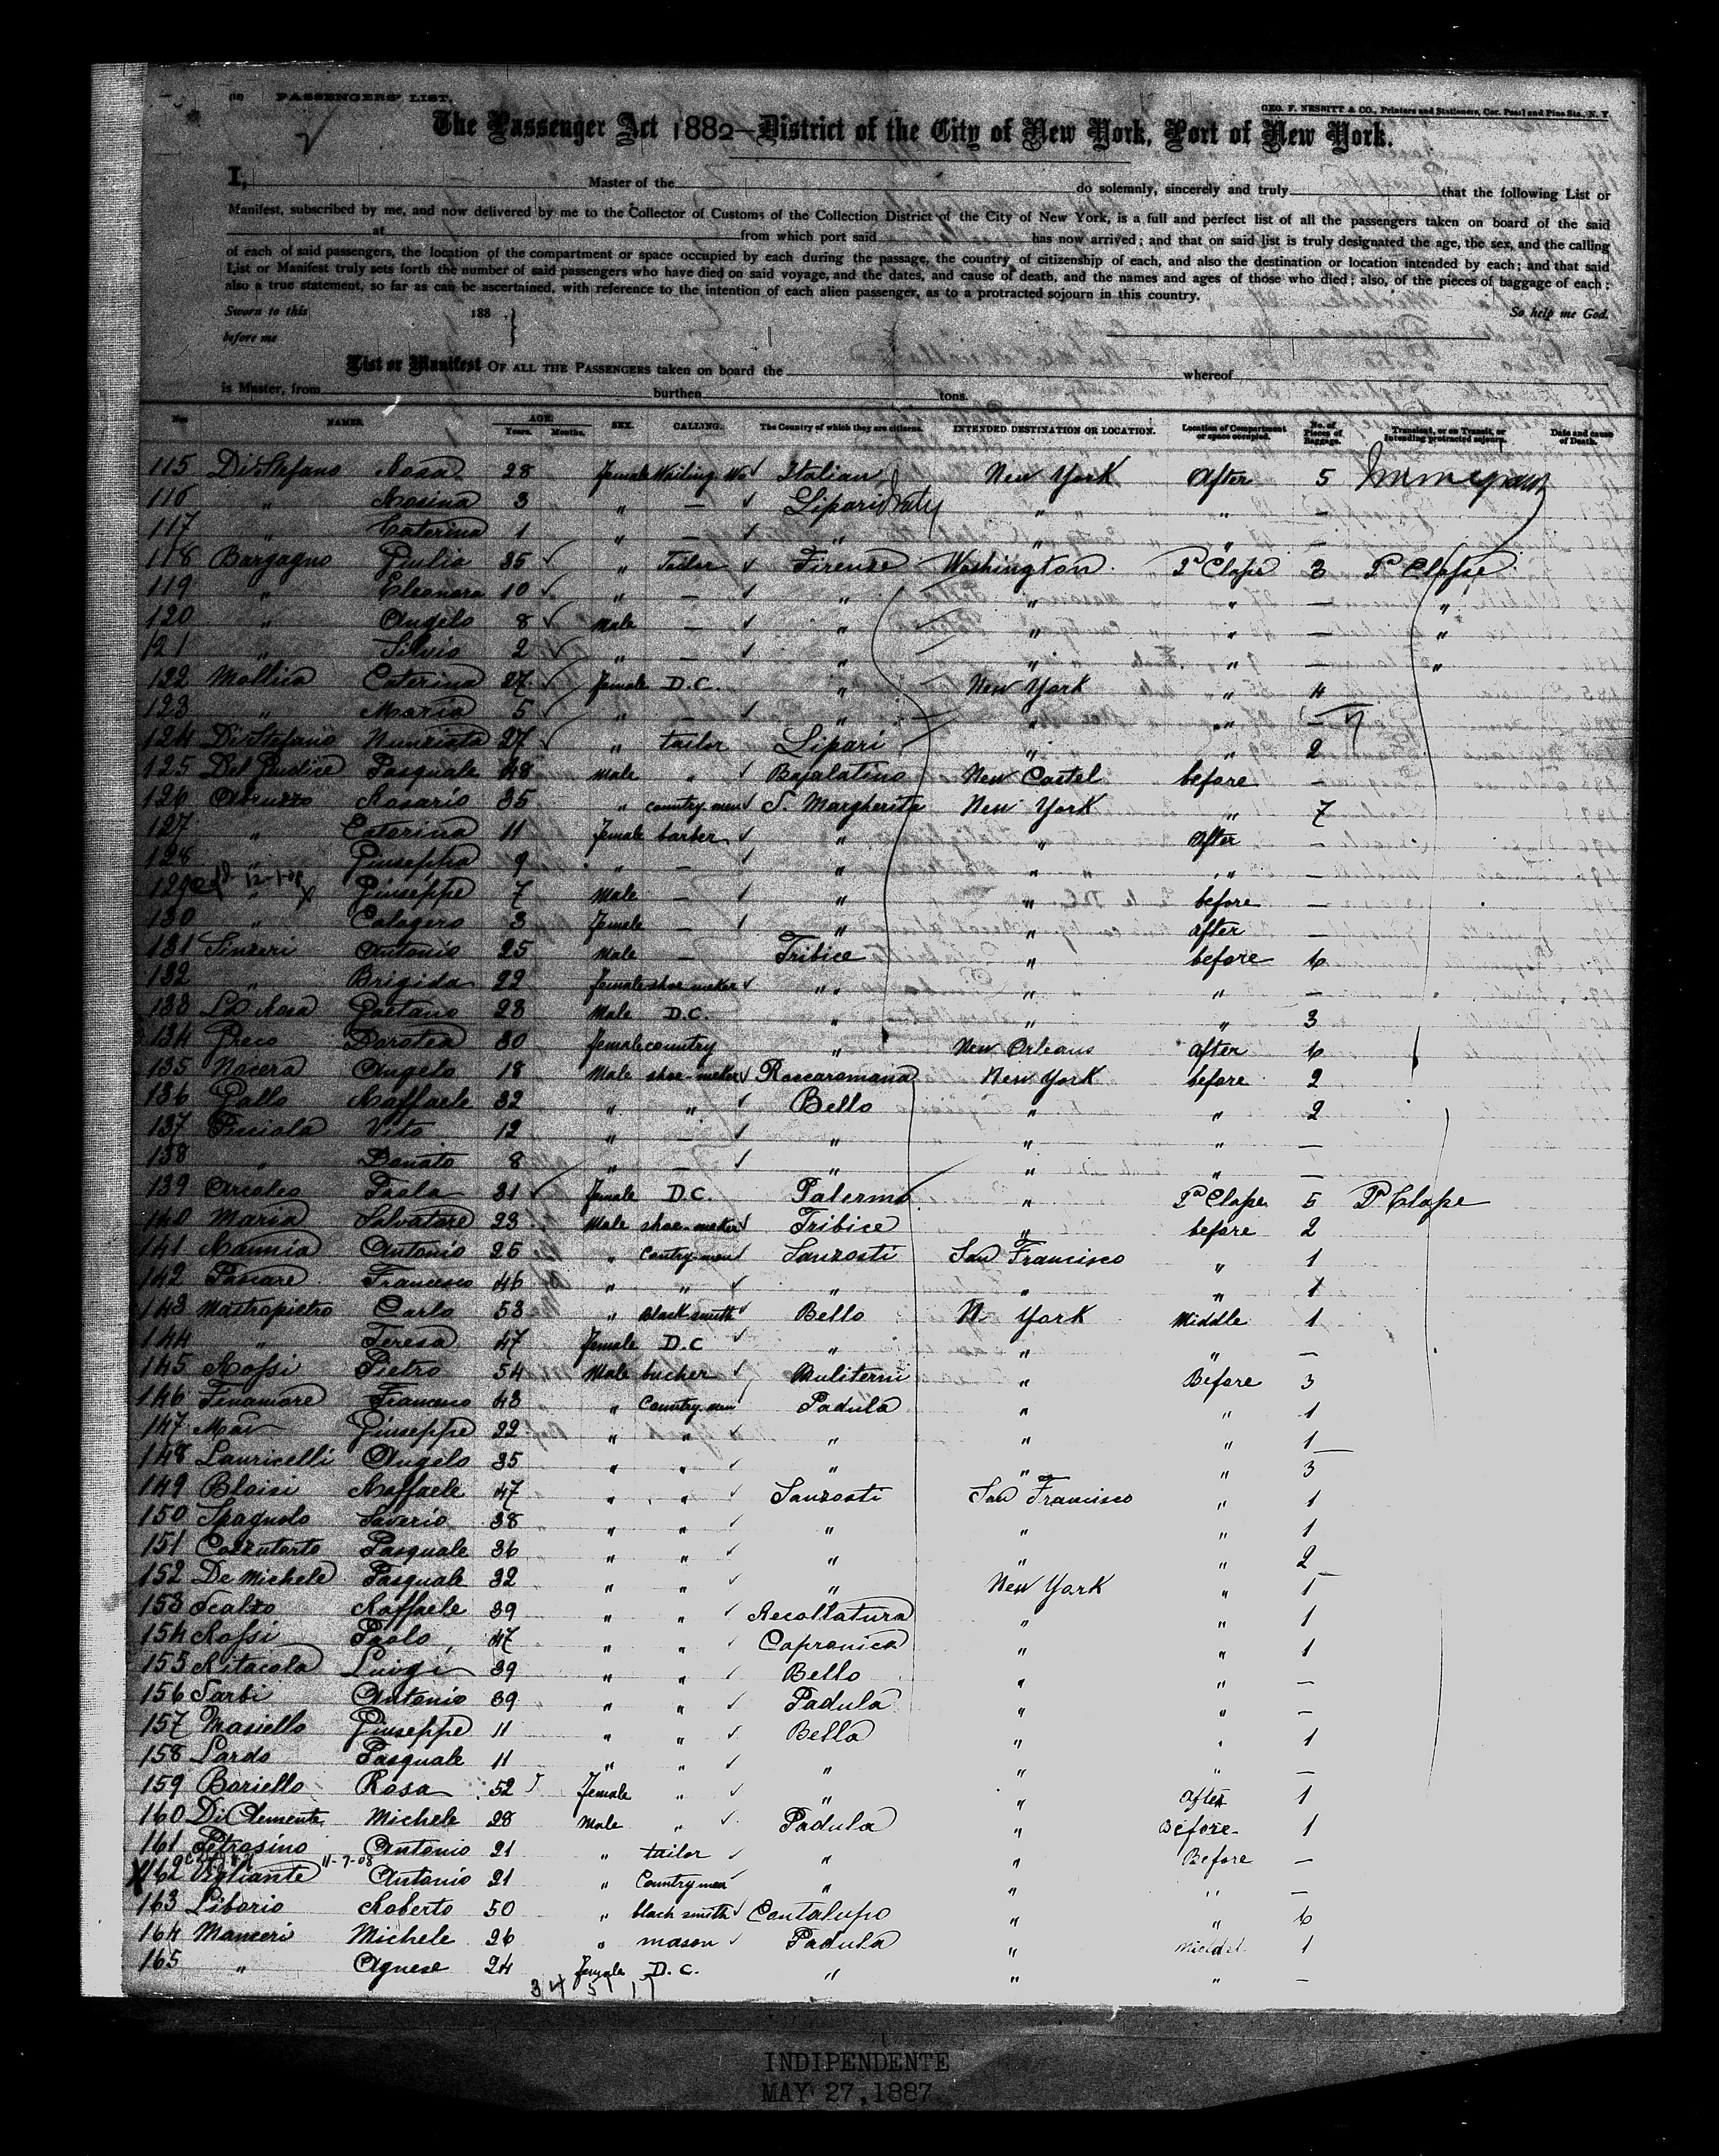 (12) PASSENGERS' LIST.
GEO. F. NESBITT & CO., Printers and Stationers, Cor. Pearl and Pine Sts., N. Y.
The Passenger Act 1882—District of the City of New York, Port of New York.
I, Master of the do solemnly, sincerely and truly that the following List or
Manifest, subscribed by me, and now delivered by me to the Collector of Customs of the Collection District of the City of New York, is a full and perfect list of all the passengers taken on board of the said
at from which port said has now arrived; and that on said list is truly designated the age, the sex, and the calling
of each of said passengers, the location of the compartment or space occupied by each during the passage, the country of citizenship of each, and also the destination or location intended by each; and that said
List or Manifest truly sets forth the number of said passengers who have died on said voyage, and the dates, and cause of death, and the names and ages of those who died; also, of the pieces of baggage of each;
also a true statement, so far as can be ascertained, with reference to the intention of each alien passenger, as to a protracted sojourn in this country.
Sworn to this 188 So help me God.
before me
List or Manifest OF ALL THE PASSENGERS taken on board the whereof
is Master, from burthen tons.
No. NAMES. AGE. Years. Months. SEX. CALLING. The Country of which they are citizens. INTENDED DESTINATION OR LOCATION. Location of Compartment or space occupied. No. of Pieces of Baggage. Transient, or on Transit, or Intending protracted sojourn. Date and cause of Death.
115 Di Stefano Rosa 28 female Waiting Wo Italian New York After 5
116 " Rosina 3 " — Lipari Italy " " —
117 " Caterina 1 " — " " " —
118 Bargagno Giulia 35 " Tailor Firenze Washington 1ª Clase 3 1ª Clase
119 " Eleonora 10 " — " " " — "
120 " Angelo 8 Male — " " " — "
121 " Silvio 2 " — " " " — "
122 Mollica Caterina 27 female D.C. " New York " 4
123 " Maria 5 " — " " " —
124 Di Stefano Nunziata 27 " tailor Lipari " " 2
125 Del Giudice Pasquale 48 Male " Bajalatino New Castel before —
126 Abruzzo Rosario 35 " country men S. Margherita New York " 7
127 " Caterina 11 female barber " " After —
128 " Giuseppa 9 " — " " " —
129 12-1-08 " Giuseppe 7 Male — " " before —
130 " Calogero 3 female — " " after —
131 Sinzeri Antonio 25 Male — Tribice " before 6
132 " Brigida 22 female shoe meker " " " —
133 La Rosa Gaetano 23 Male D.C. " " " 3
134 Greco Dorotea 30 female country " New Orleans after 6
135 Nocera Angelo 18 Male shoe-meker Roccaromana New York before 2
136 Gallo Raffaele 32 " " Bello " " 2
137 Picciola Vito 12 " — " " " —
138 " Donato 8 " — " " " —
139 Arcoleo Paola 31 female D.C. Palermo " 1ª Clase 5 1ª Clase
140 Maria Salvatore 23 Male shoe-meker Tribice " before 2
141 Mannia Antonio 25 " Contry men Sanzosti San Francisco " 1
142 Passare Francesco 46 " " " " " 1
143 Mastropietro Carlo 53 " Black smith Bello N York Middle 1
144 " Teresa 47 female D.C " " " —
145 Rossi Pietro 54 Male bucher Muliterni " Before 3
146 Finamore Francesco 43 " Country men Padula " " 1
147 Giuseppe 22 " " " " " 1
148 Lauricelli Angelo 35 " " " " " 3
149 Blaisi Raffaele 47 " " Sanzosti San Francisco " 1
150 Spagnolo Saverio 38 " " " " " 1
151 Cozzutorto Pasquale 36 " " " " " 2
152 De Michele Pasquale 32 " " " New York " 1
153 Scalzo Raffaele 39 " " Recollatura " " 1
154 Rossi Paolo 47 " " Capranica " " 1
155 Ritacola Luigi 39 " " Bello " " —
156 Sarbi Antonio 39 " " Padula " " —
157 Masiello Giuseppe 11 " " Bella " " 1
158 Lardo Pasquale 11 " " " " " —
159 Boriello Rosa 52 female " " " after 1
160 Di Clemente Michele 28 Male " Padula " Before 1
161 Petrosino Antonio 21 " tailor " " Before —
X 162 Vigliante 11-7-08 Antonio 21 " Country men " " " —
163 Liborio Roberto 50 " black smith Cantalupo " " 6
164 Manzeri Michele 26 " mason Padula " Middel 1
165 " Agnese 24 female D.C. " " " —
34 5 11
INDIPENDENTE
MAY 27,1887